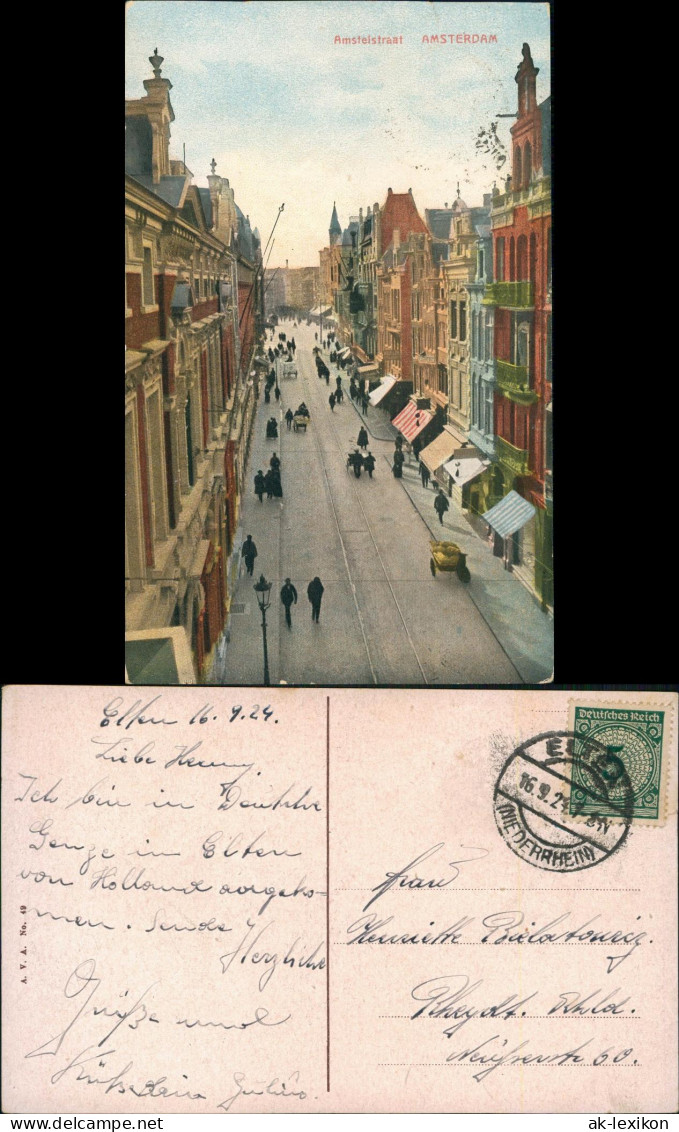 Amstelstraat AMSTERDAM
Elten 16.9.24.
Liebe Henny,
Ich bin in Deutsche
Genze in Elten
von Holland angeko-
men. Sende
Herzliche
Grüße und
Küße dein Julius.
A. V. A. No. 49
Deutsches Reich
5
ELTEN
16.9.24
(NIEDERRHEIN)
Frau
Henriette Bialatowicz.
Rheydt. Rhld.
Neußerstr 60.
ak-lexikon